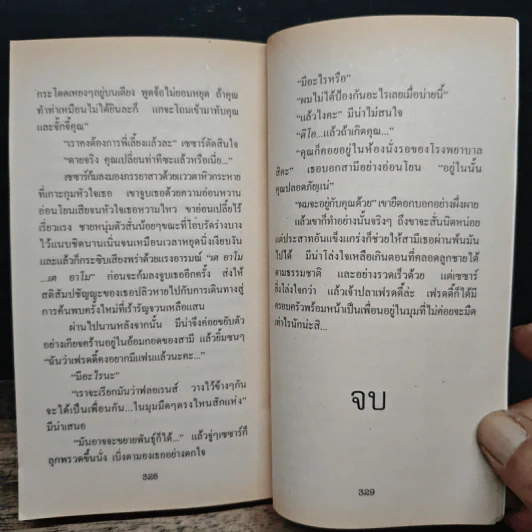 กระโดดเหยงๆอยู่บนเตียง พูดจ้อไม่ยอมหยุด ถ้าคุณ
ทำท่าเหมือนไม่ได้ยินละก็ แกจะโถมเข้ามาทับคุณ
และจั๊กจี้คุณ”
“เราคงต้องการพี่เลี้ยงแล้วละ” เซซาร์ตัดสินใจ
“ตายจริง คุณเปลี่ยนท่าทีซะแล้วหรือเนี่ย...”
เซซาร์ก้มลงมองภรรยาสาวด้วยแววตาหิวกระหาย
ที่เกาะกุมหัวใจเธอ เขาจูบเธอด้วยความอ่อนหวาน
อ่อนโยนเสียจนหัวใจเธอหวามไหว ขาอ่อนเปลี้ยไร้
เรี่ยวแรง ชายหนุ่มตัวสั่นน้อยๆขณะที่โอบรัดร่างบาง
ไว้แนบชิดนานเนิ่นจนเหมือนเวลาหยุดนิ่งเงียบงัน
และแล้วก็กระซิบเสียงพร่าด้วยแรงอารมณ์ “เต อาโม
...เต อาโม” ก่อนจะก้มลงจูบเธออีกครั้ง ส่งให้
สติสัมปชัญญะของเธอปลิวหายไปกับการเดินทางสู่
การค้นพบครั้งใหม่ที่เร้ารัญจวนเหลือแสน
ผ่านไปนานหลังจากนั้น มีน่าจึงค่อยขยับตัว
อย่างเกียจคร้านอยู่ในอ้อมกอดของสามี แล้วยิ้มซนๆ
“ฉันว่าเฟรดดี้คงอยากมีแฟนแล้วนะคะ...”
“มีอะไรนะ”
“เราจะเรียกมันว่าฟลอเรนส์ วางไว้ข้างๆกัน
จะได้เป็นเพื่อนกัน...ในมุมมืดๆตรงไหนสักแห่ง”
มีน่าเสนอ
“มันอาจจะขยายพันธุ์ก็ได้...” แล้วจู่ๆเซซาร์ก็
ลุกพรวดขึ้นนั่ง เบิ่งตามองเธออย่างตกใจ
328
“มีอะไรหรือ”
“ผมไม่ได้ป้องกันอะไรเลยเมื่อบ่ายนี้”
“แล้วไงคะ” มีน่าไม่สนใจ
“ดิโอ...แล้วถ้าเกิดคุณ...”
“คุณก็คอยอยู่ในห้องนั่งรอของโรงพยาบาล
สิคะ” เธอบอกสามีอย่างอ่อนโยน “อยู่ในนั้น
คุณปลอดภัยแน่”
“ผมจะอยู่กับคุณด้วย” เขายืดอกบอกอย่างผึ่งผาย
แล้วเขาก็ทำอย่างนั้นจริงๆ ถึงขาจะสั่นนิดหน่อย
แต่ประสาทอันแข็งแกร่งก็ช่วยให้สามีเธอผ่านพ้นมัน
ไปได้ มีน่าโล่งใจเหลือเกินตอนที่คลอดลูกชายได้
ตามธรรมชาติ และอย่างรวดเร็วด้วย แต่เซซาร์
ยิ่งโล่งใจกว่า แล้วเจ้าปลาเฟรดดี้ล่ะ เฟรดดี้ก็ได้มี
ครอบครัวพร้อมหน้าเป็นเพื่อนอยู่ในมุมที่ไม่ค่อยจะมืด
เท่าไรนักน่ะสิ...
จบ
329